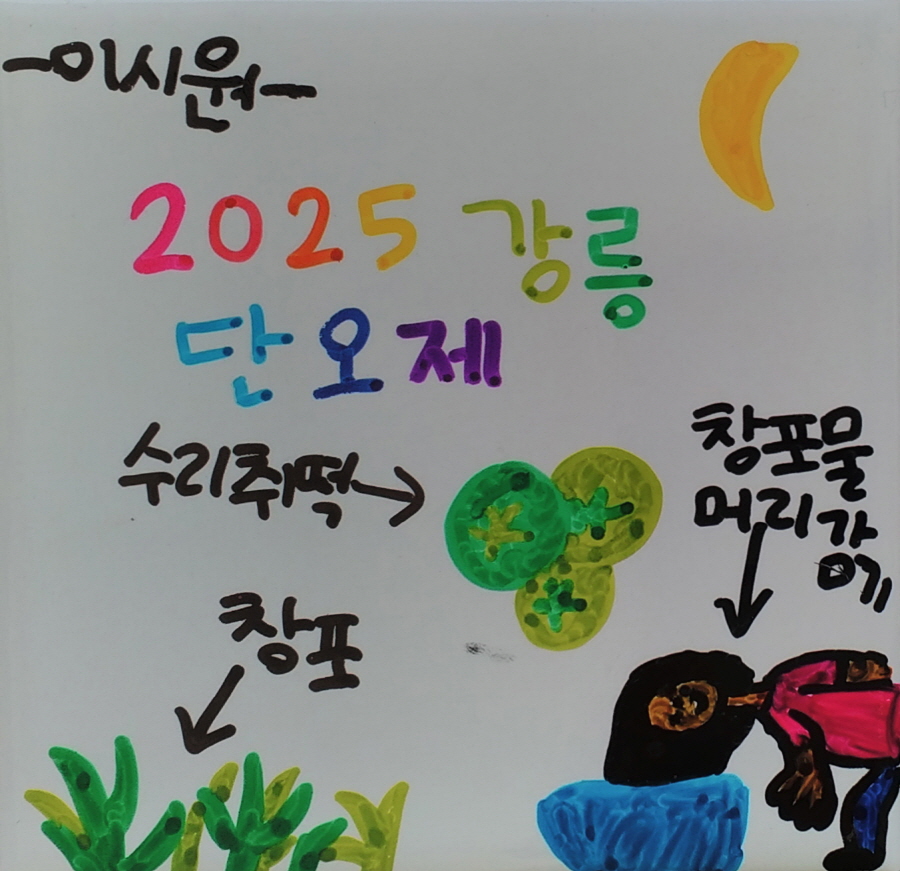 -이시원-
2025 강릉
단오제
수리취떡→
창포물
머리감기
창포